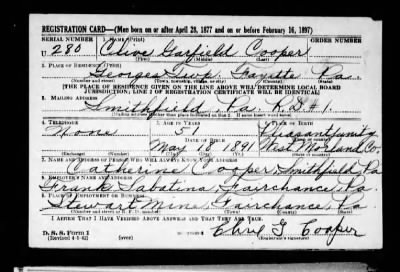 REGISTRATION CARD—(Men born on or after April 28, 1877 and on or before February 16, 1897)
SERIAL NUMBER 1. NAME (Print) ORDER NUMBER
U 280 Clive Garfield Cooper
(First) (Middle) (Last)
2. PLACE OF RESIDENCE (Print)
Georges Twp. Fayette Pa.
(Number and street) (Town, township, village, or city) (County) (State)
[THE PLACE OF RESIDENCE GIVEN ON THE LINE ABOVE WILL DETERMINE LOCAL BOARD
JURISDICTION; LINE 2 OF REGISTRATION CERTIFICATE WILL BE IDENTICAL]
3. MAILING ADDRESS
Smithfield Pa. R.D #1.
[Mailing address if other than place indicated on line 2. If same insert word same]
4. TELEPHONE 5. AGE IN YEARS 6. PLACE OF BIRTH
None 51 Pleasant Unity
DATE OF BIRTH (Town or county)
May 16 1891 West Morland Co.
(Exchange) (Number) (Mo.) (Day) (Yr.) (State or country)
7. NAME AND ADDRESS OF PERSON WHO WILL ALWAYS KNOW YOUR ADDRESS
Catherine Cooper, Smithfield, Pa
8. EMPLOYER'S NAME AND ADDRESS
Frank Sabatina Fairchance, Pa.
9. PLACE OF EMPLOYMENT OR BUSINESS
Stewart Mine, Fairchance, Pa
(Number and street or R. F. D. number) (Town) (County) (State)
I AFFIRM THAT I HAVE VERIFIED ABOVE ANSWERS AND THAT THEY ARE TRUE.
D. S. S. Form 1
(Revised 4-1-42) (over) Cooper
(Registrant's signature)